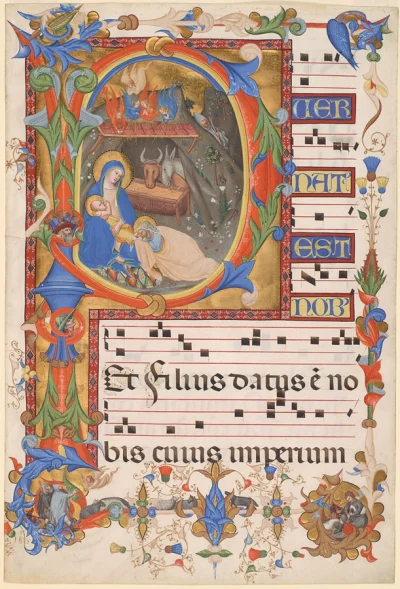 PUER
NAT
EST
NOB
Et Filius datus ē no
bis cuius imperium